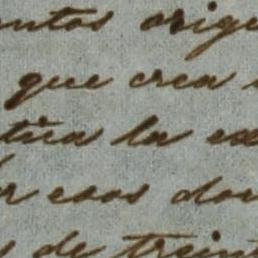 entos orige
que crea
tica la ex
r esos dor
s de treint